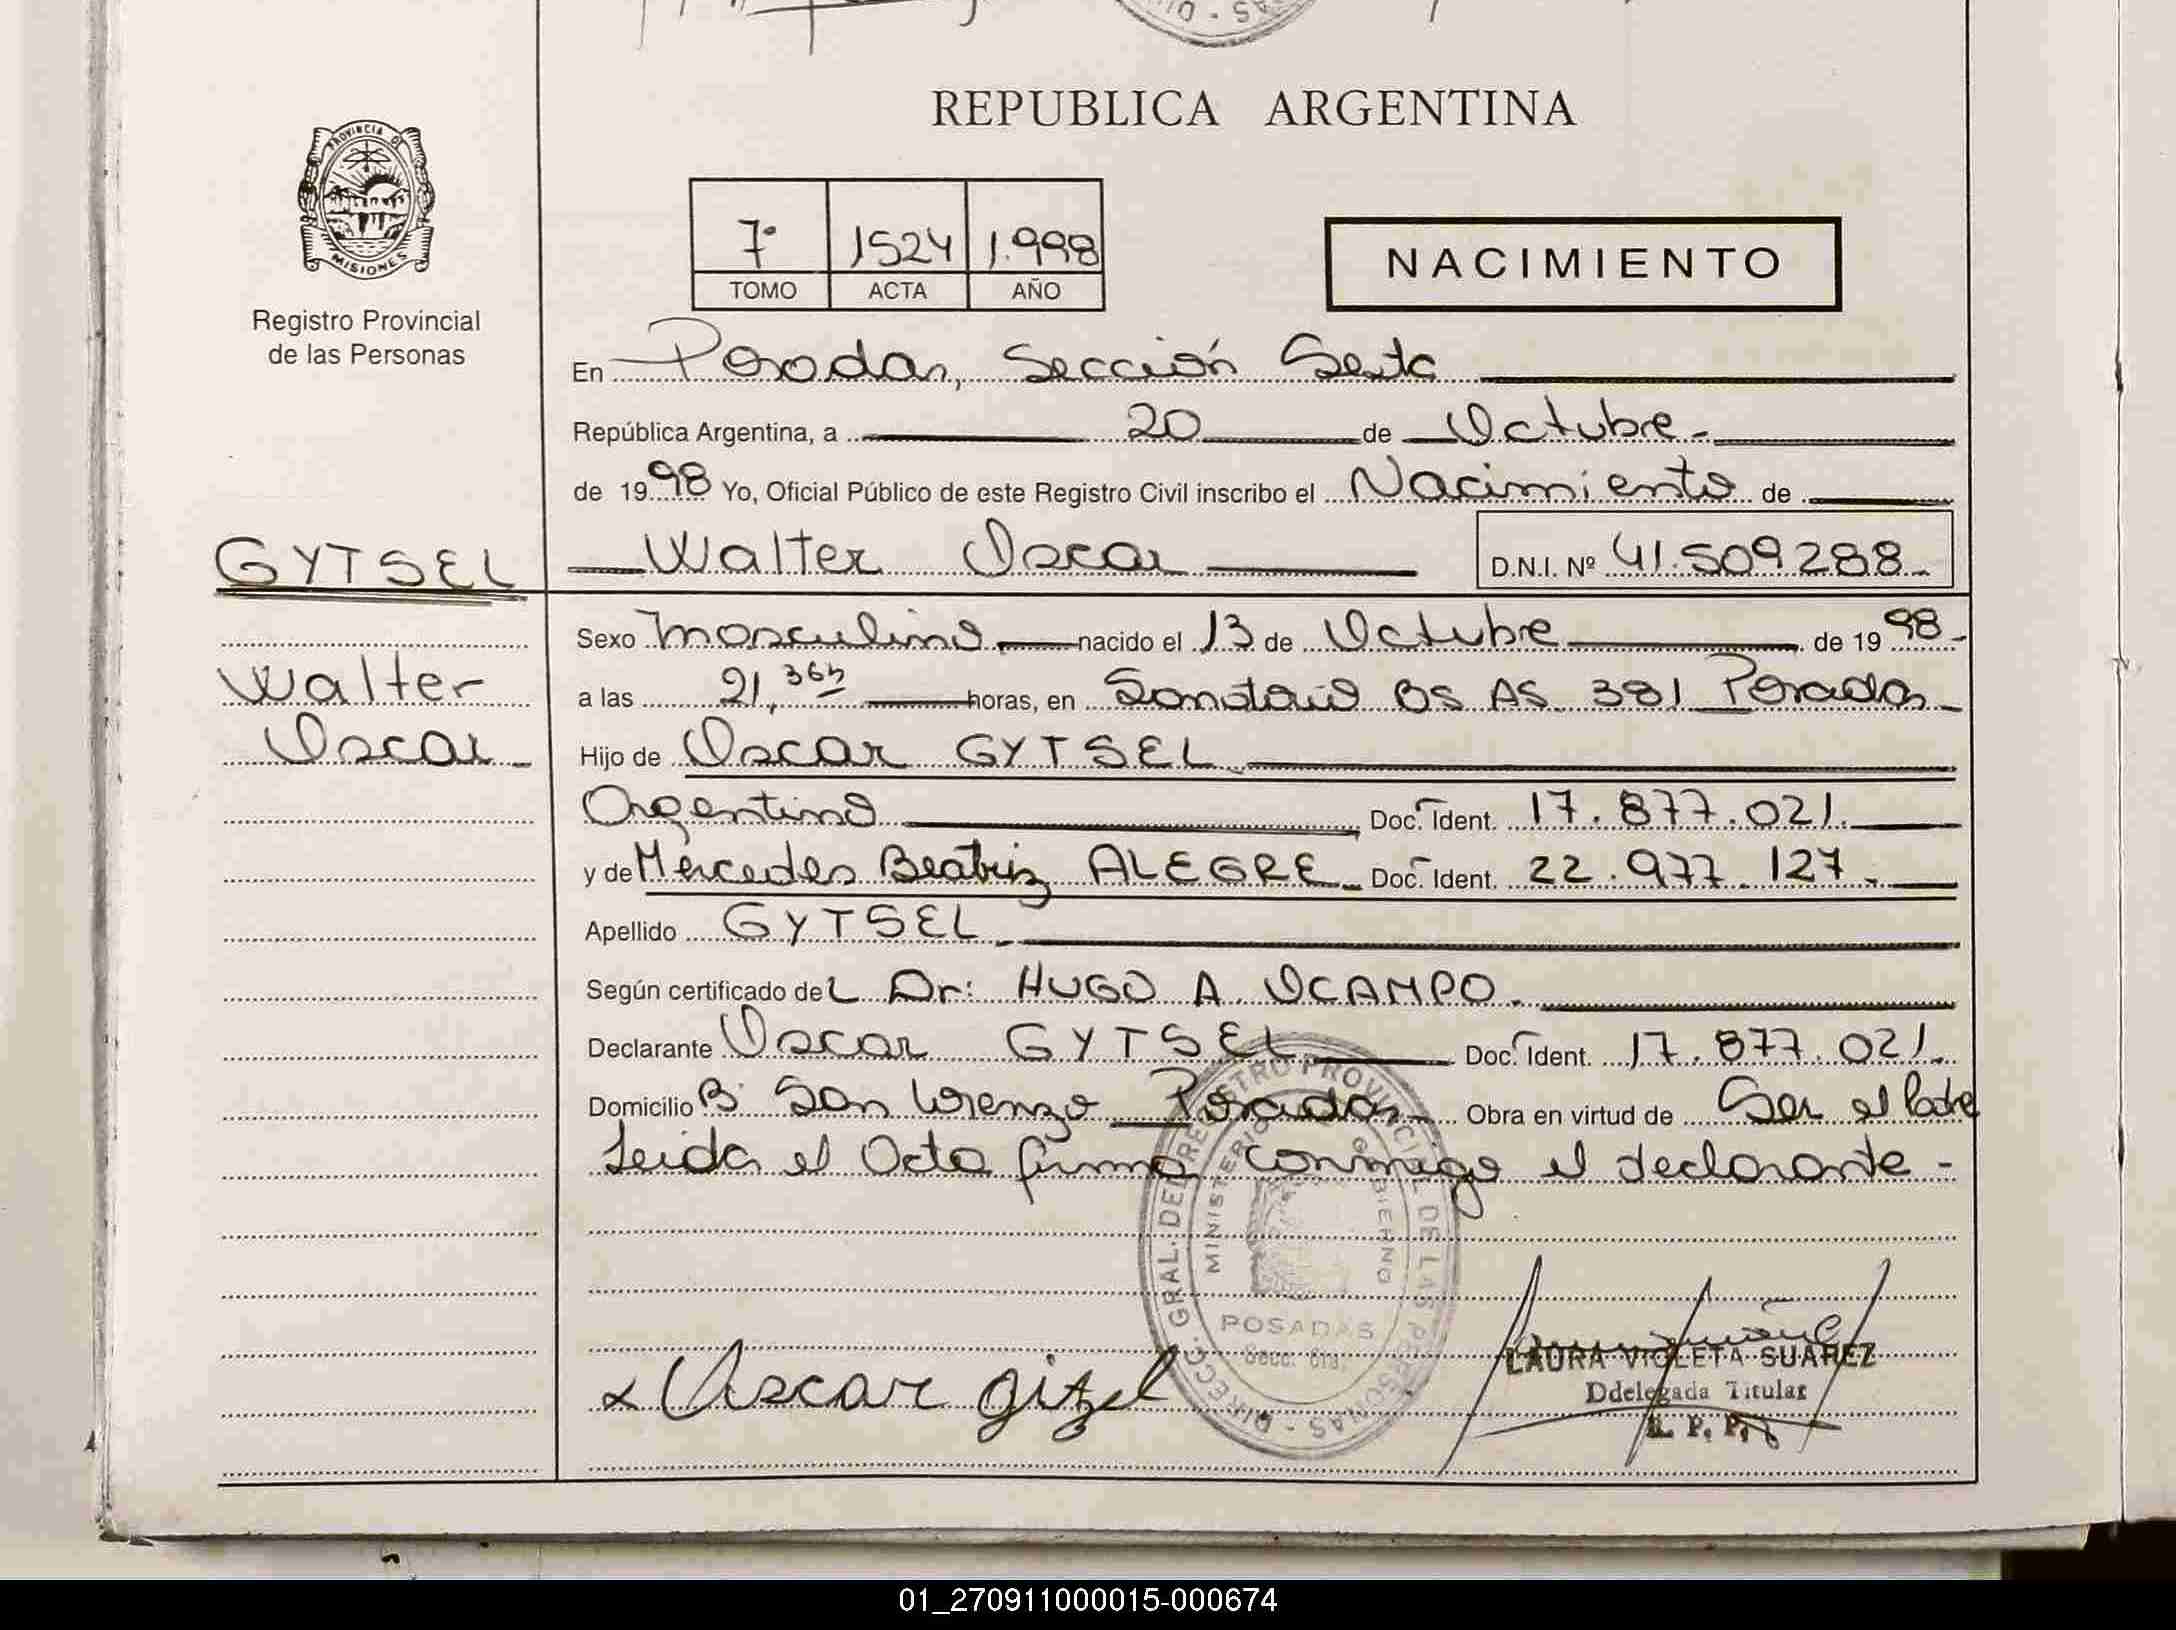 REPUBLICA ARGENTINA
PROVINCIA DE
MISIONES
Registro Provincial
de las Personas
7º 1524 1.998
TOMO ACTA AÑO
NACIMIENTO
En Posadas, Sección Sexta
República Argentina, a 20 de Octubre.
de 1998 Yo, Oficial Público de este Registro Civil inscribo el Nacimiento de
GYTSEL
Walter Oscar D.N.I. Nº 41.509288
Walter
Oscar
Sexo Masculino nacido el 13 de Octubre de 1998
a las 21,36h horas, en Sanatorio BS AS 381 Posadas
Hijo de Oscar GYTSEL
Argentino Doc. Ident. 17.877.021.
y de Mercedes Beatriz ALEGRE Doc. Ident. 22.977.127.
Apellido GYTSEL
Según certificado del Dr: HUGO A. OCAMPO.
Declarante Oscar GYTSEL Doc. Ident. 17.877.021.
Domicilio Bº San Lorenzo Posadas Obra en virtud de Ser el Padre
Leida el Acta firma conmigo el declarante -
DIRECC. GRAL. DEL REGISTRO PROVINCIAL DE LAS PERSONAS
MINISTERIO GOBIERNO
POSADAS
Secc. 6ta.
x Oscar gitzel
LAURA VIOLETA SUAREZ
Ddelegada Titular
R. P. P.
01_270911000015-000674